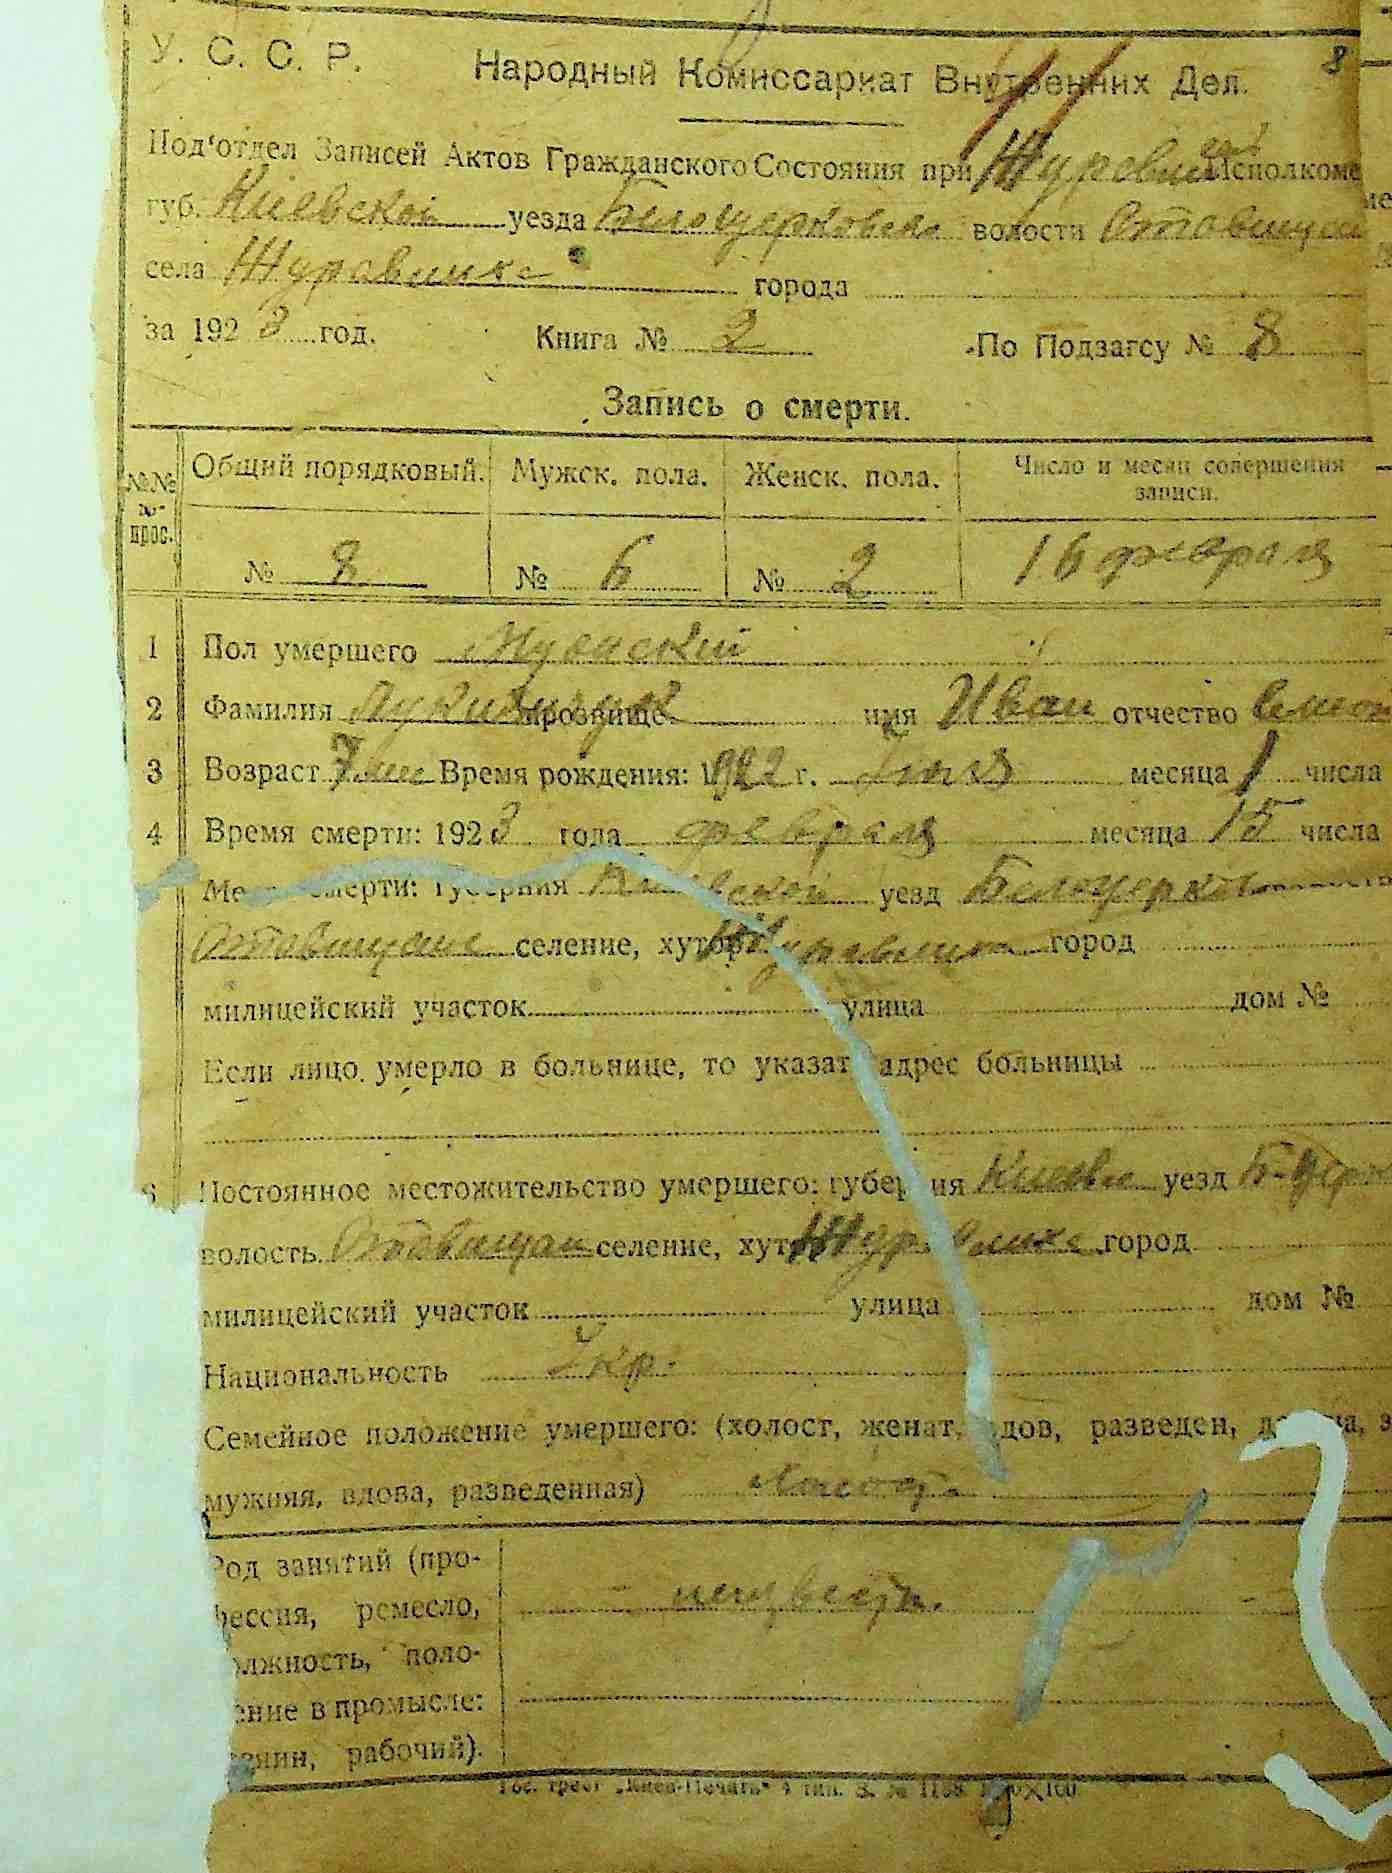 8
У. С. С. Р. Народный Комиссариат Внутренних Дел.
Под'отдел Записей Актов Гражданского Состояния при Исполкоме
губ. Киевской уезда Белоцерковско волости Ставищан
села Журавлихе города
за 1923 год. Книга № 2 По Подзагсу № 8
Запись о смерти.
№№ прос. Общий порядковый. Мужск. пола. Женск. пола. Число и месяц совершения записи.
№ 8 № 6 № 2 16 февраля
1 Пол умершего Мужский
2 Фамилия прозвище имя Иван отчество
3 Возраст 7 Время рождения: 1922 г. месяца 1 числа
4 Время смерти: 1923 года февраля месяца 15 числа
Ме смерти: губерния Киевской уезд Белоцерков
селение, хутор Журавлиха город
милицейский участок улица дом №
Если лицо умерло в больнице, то указат адрес больницы
6 Постоянное местожительство умершего: губерния Киевск уезд Б-Церк
волость Ставищан селение, хут Журавлихе город
милицейский участок улица дом №
Национальность Укр.
Семейное положение умершего: (холост, женат, вдов, разведен, з
мужняя, вдова, разведенная) холост.
Род занятий (про-
фессия, ремесло,
олжность, поло-
ение в промысле:
зяин, рабочий).
Гос. трест „Киев-Печать" 4 тип. З. № 1158